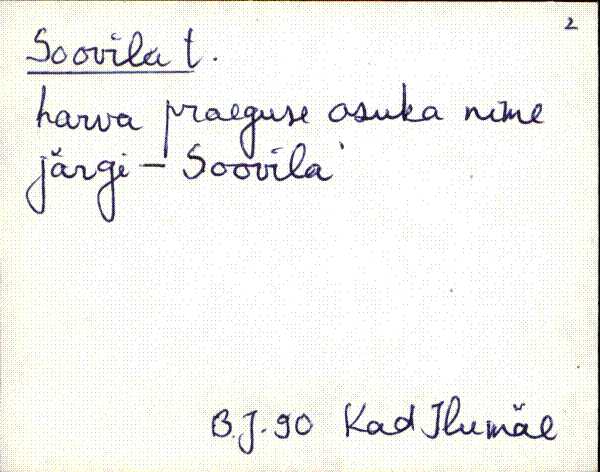 2
Soovila t.
harva praeguse asuka nime
järgi – Soovila
B.J. 90 Kad Ilumäe